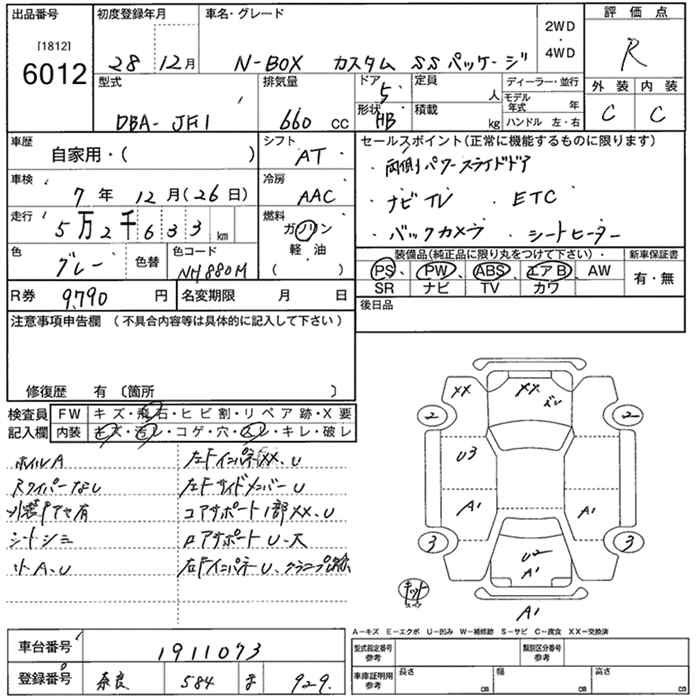 出品番号 初度登録年月 車名・グレード 2WD・4WD 評価点
[1812]
6012 28 12月 N-BOX カスタム SSパッケージ R
型式 排気量 ドア 5 定員 人 ディーラー・並行 外装 内装
DBA- JF1 660 cc 形状 HB 積載 kg モデル年式 年 C C
ハンドル 左・右
車歴 シフト セールスポイント(正常に機能するものに限ります)
自家用・( ) AT ・両側パワースライドドア
車検 冷房
7年 12月(26日) AAC ・ナビTV ・ETC
走行 燃料
5万2千633km ガソリン ・バックカメラ ・シートヒーター
色 色替 色コード 軽・油 装備品(純正品に限り丸をつけて下さい)・ 新車保証書
グレー NH880M ( ) PS、 PW、 ABS、 エアB、 AW 有・無
SR ナビ TV カワ
R券 9,790円 名変期限 月 日 後日品
注意事項申告欄(不具合内容等は具体的に記入して下さい)
修復歴 有〔箇所 〕
検査員 FW キズ・飛石・ヒビ割・リペア跡・X要
記入欄 内装 キズ・汚レ・コゲ・穴・スレ・キレ・破レ
ホイルA 左Fインパネ XX、U
スワイパーなし 左Fサイドメンバー U
外装 有 コアサポート1部XX、U
シートシミ ロアサポートU・大
小A、U 左Fインパネ U、
XX XX ズレ
2 2
U3
A1 A1
3 3
U2
A1
キット
A1
A-キズ E-エクボ U-凹み W-補修跡 S-サビ C-腐食 XX-交換済
車台番号 1911073 型式指定番号 参考 類別区分番号 参考
登録番号 奈良 584 929 車庫証明用 参考 長さ cm 幅 cm 高さ cm